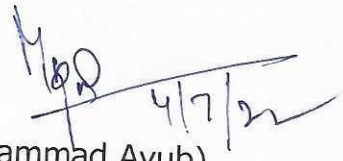 4/7/22
ammad Ayub)